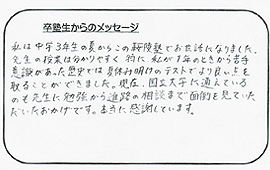 卒塾生からのメッセージ
私は中学3年生の夏からこの 桜陵塾でお世話になりました。
先生の授業は分かりやすく 特に、私が1年のときから苦手
意識があった歴史では 夏休み明けのテストでより良い点を
取ることができました。現在、国立大学に通えている
のも先生に勉強から進路の相談まで面倒を見ていた
だいたおかげです。本当に感謝しています。